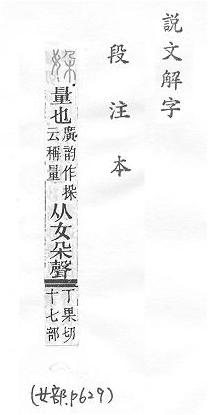 説文解字
段注本
量也廣韵作挅云稱量从女朵聲丁果切十七部
(女部.p629)